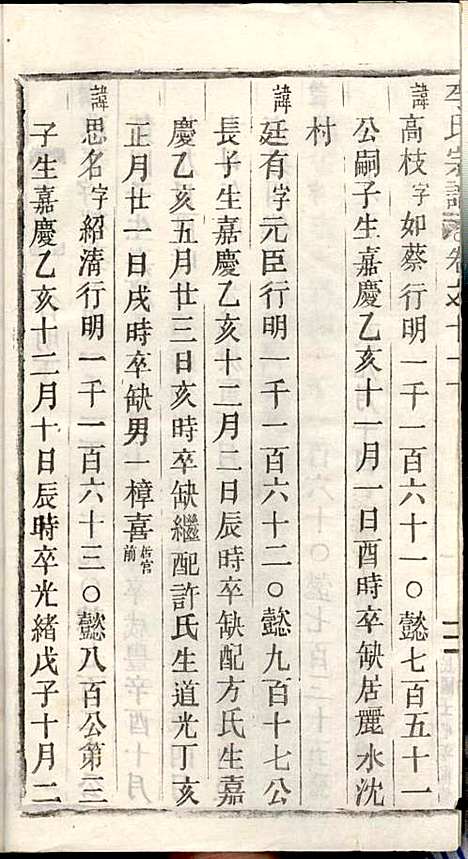 李氏宗譜 卷之十一
諱高枝字如蔡行明一千一百六十一○懿七百五十一
公嗣子生嘉慶乙亥十一月一日酉時卒缺居麗水沈
村
諱廷有字元臣行明一千一百六十二○懿九百十七公
長子生嘉慶乙亥十二月二日辰時卒缺配方氏生嘉
慶乙亥五月廿三日亥時卒缺繼配許氏生道光丁亥
正月廿一日戌時卒缺男一樟喜析官前
諱思名字紹清行明一千一百六十三○懿八百公第三
子生嘉慶乙亥十二月十日辰時卒光緒戊子十月二